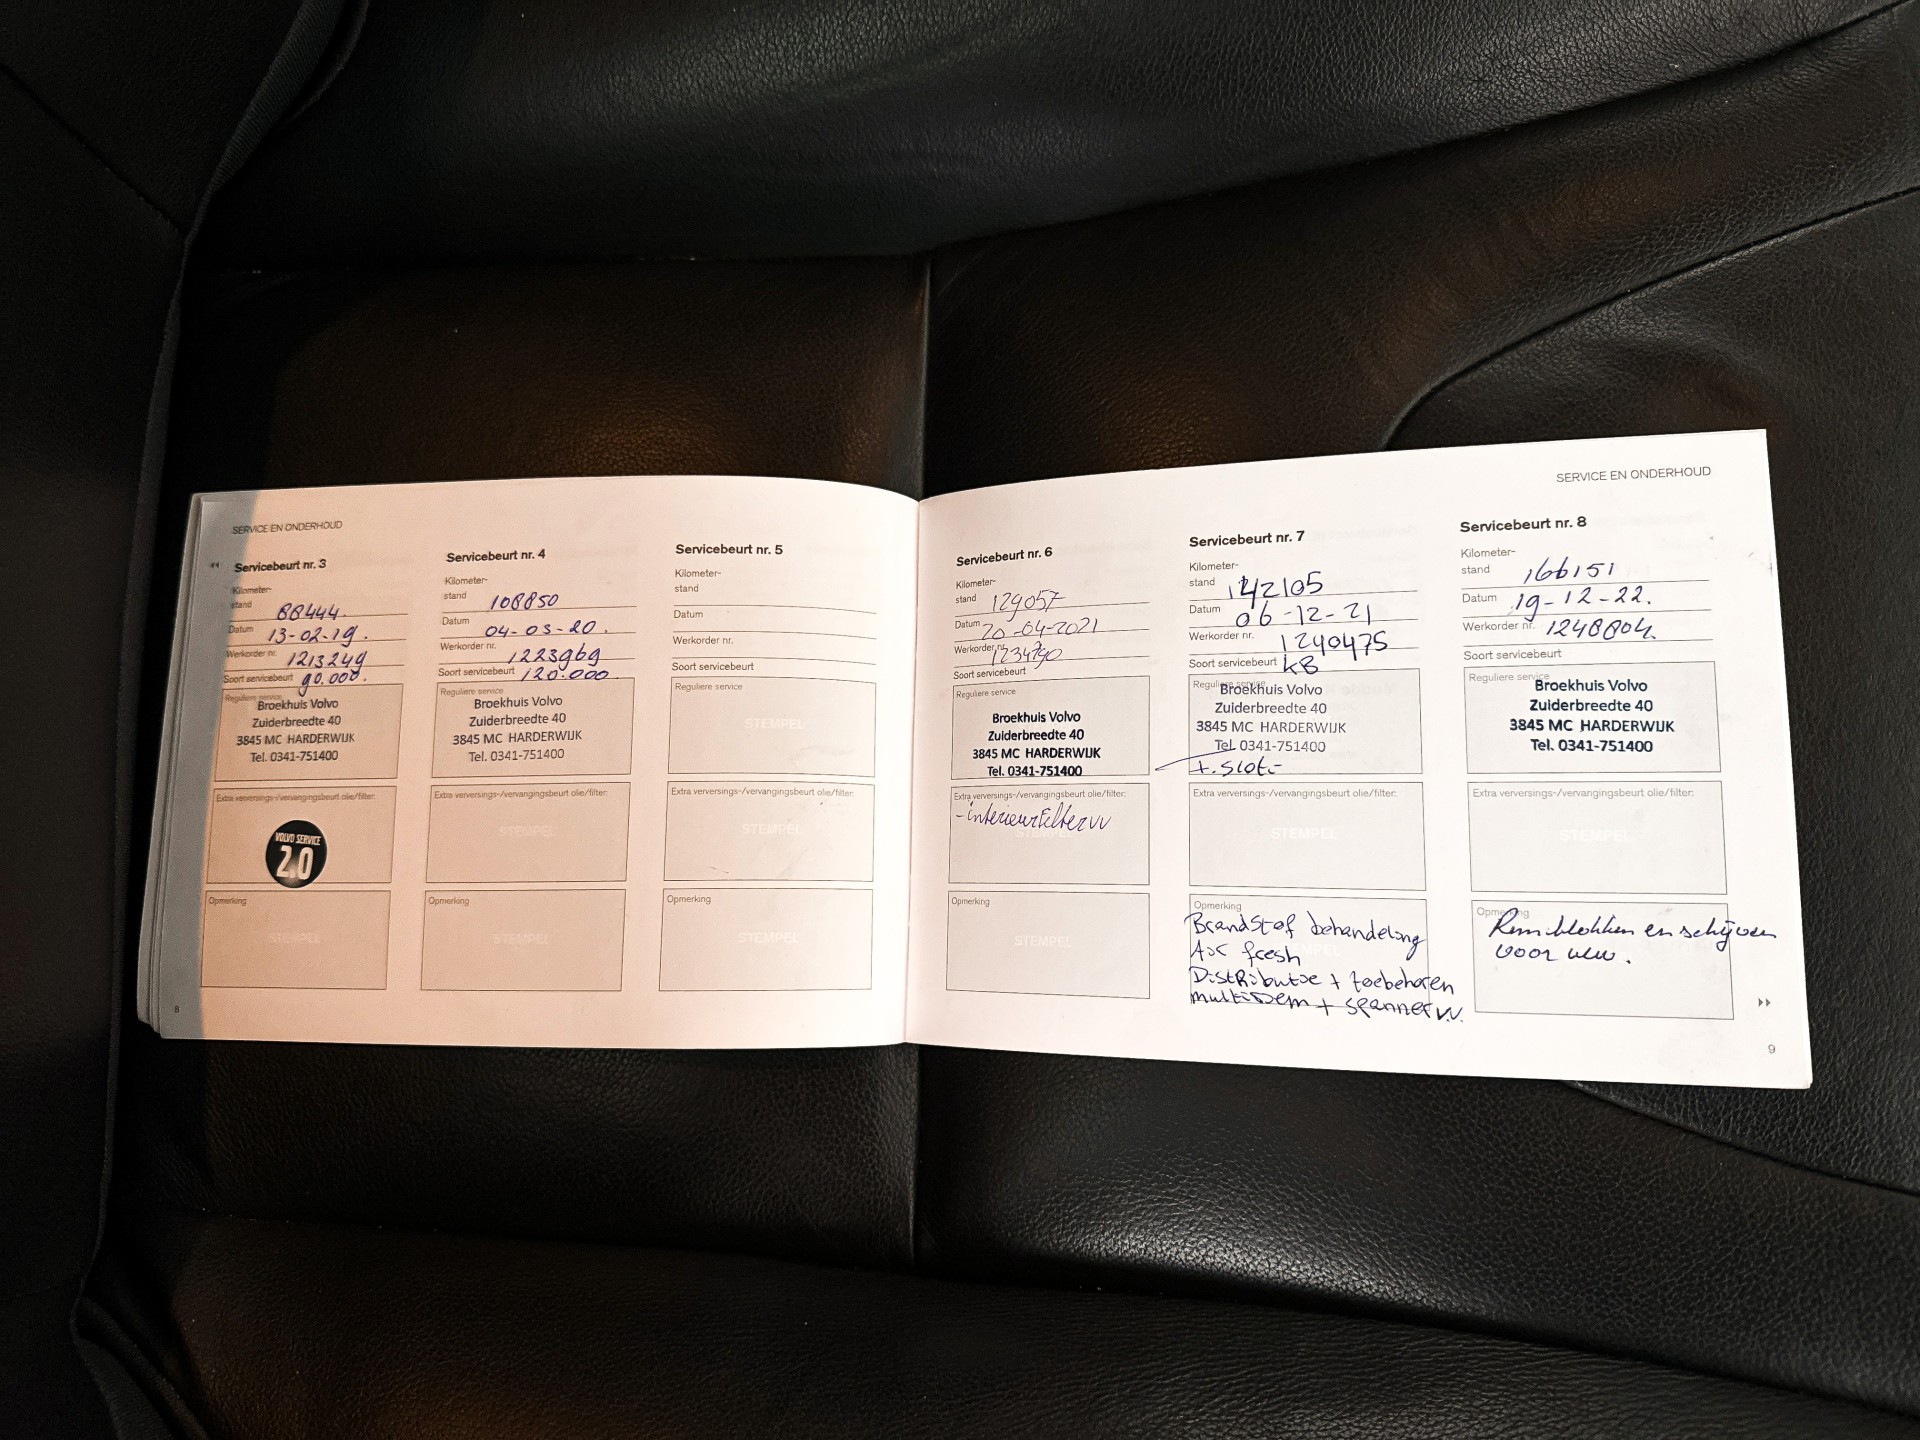 SERVICE EN ONDERHOUD
Servicebeurt nr. 3
Kilometer-
stand 88444.
Datum 13-02-19.
Werkorder nr. 1213249
Soort servicebeurt 90.000.
Reguliere service
Broekhuis Volvo
Zuiderbreedte 40
3845 MC HARDERWIJK
Tel. 0341-751400
Extra verversings-/vervangingsbeurt olie/filter:
VOLVO SERVICE
2.0
Opmerking
STEMPEL
8
Servicebeurt nr. 4
Kilometer-
stand 108850
Datum 04-03-20.
Werkorder nr. 1223969
Soort servicebeurt 120.000.
Reguliere service
Broekhuis Volvo
Zuiderbreedte 40
3845 MC HARDERWIJK
Tel. 0341-751400
Extra verversings-/vervangingsbeurt olie/filter:
STEMPEL
Opmerking
STEMPEL
Servicebeurt nr. 5
Kilometer-
stand
Datum
Werkorder nr.
Soort servicebeurt
Reguliere service
STEMPEL
Extra verversings-/vervangingsbeurt olie/filter:
STEMPEL
Opmerking
STEMPEL
SERVICE EN ONDERHOUD
Servicebeurt nr. 6
Kilometer-
stand 129057
Datum 20-04-2021
Werkorder nr. 1234790
Soort servicebeurt
Reguliere service
Broekhuis Volvo
Zuiderbreedte 40
3845 MC HARDERWIJK
Tel. 0341-751400
Extra verversings-/vervangingsbeurt olie/filter:
- interieurfilter vv
STEMPEL
Opmerking
STEMPEL
Servicebeurt nr. 7
Kilometer-
stand 142105
Datum 06-12-21
Werkorder nr. 1240475
Soort servicebeurt KB
Reguliere service
Broekhuis Volvo
Zuiderbreedte 40
3845 MC HARDERWIJK
Tel. 0341-751400
+. slot.-
Extra verversings-/vervangingsbeurt olie/filter:
STEMPEL
Opmerking
Brandstof behandeling
Air fresh
Distributie + toebehoren
multiriem + spanner v.v.
Servicebeurt nr. 8
Kilometer-
stand 166151
Datum 19-12-22.
Werkorder nr. 1248804
Soort servicebeurt
Reguliere service
Broekhuis Volvo
Zuiderbreedte 40
3845 MC HARDERWIJK
Tel. 0341-751400
Extra verversings-/vervangingsbeurt olie/filter:
STEMPEL
Opmerking
Remblokken en schijven
voor
9